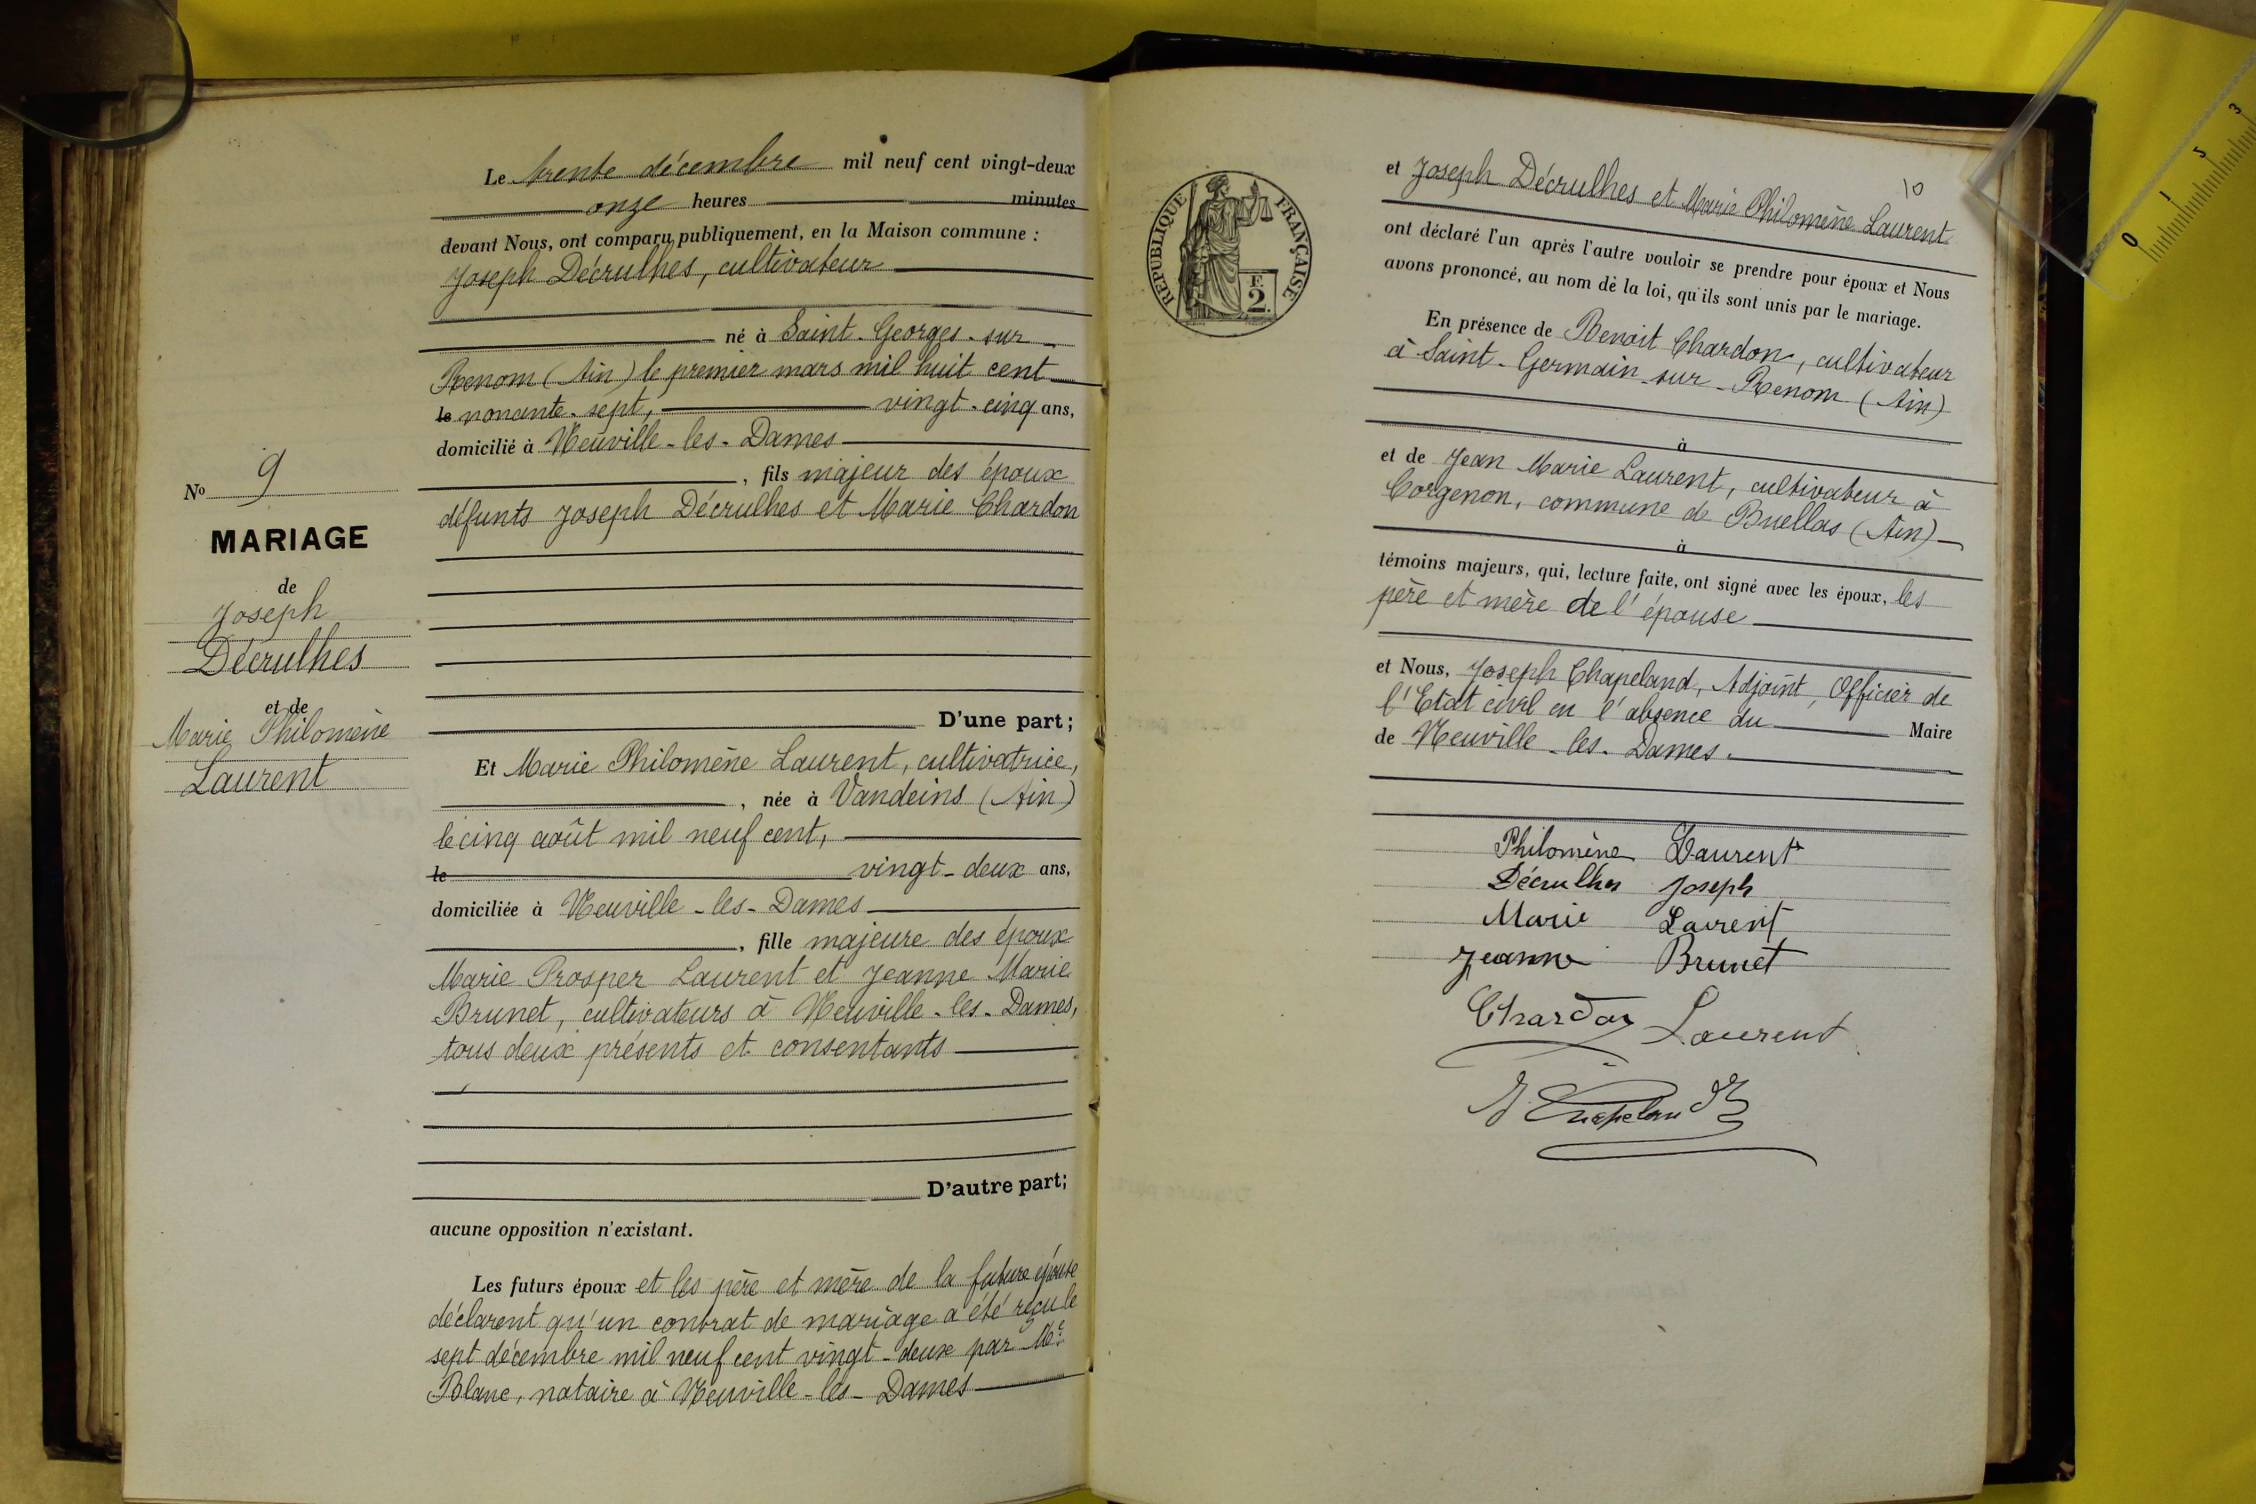 Le trente décembre mil neuf cent vingt-deux
onze heures minutes
devant Nous, ont comparu publiquement, en la Maison commune :
Joseph Décrulhes, cultivateur
né à Saint-Georges-sur-
Renom (Ain) le premier mars mil huit cent
le nonante-sept, vingt-cinq ans,
domicilié à Neuville-les-Dames
, fils majeur des époux
défunts Joseph Décrulhes et Marie Chardon
No 9
MARIAGE
de
Joseph
Décrulhes
et de
Marie Philomène
Laurent
D'une part;
Et Marie Philomène Laurent, cultivatrice,
, née à Vandeins (Ain)
le cinq août mil neuf cent,
le vingt-deux ans,
domiciliée à Neuville-les-Dames
, fille majeure des époux
Marie Prosper Laurent et Jeanne Marie
Brunet, cultivateurs à Neuville-les-Dames,
tous deux présents et consentants
D'autre part;
aucune opposition n'existant.
Les futurs époux et les père et mère de la future épouse
déclarent qu'un contrat de mariage a été reçu le
sept décembre mil neuf cent vingt-deux par Me
Blanc, notaire à Neuville-les-Dames
RÉPUBLIQUE FRANÇAISE
F.
2
10
et Joseph Décrulhes et Marie Philomène Laurent
ont déclaré l'un après l'autre vouloir se prendre pour époux et Nous
avons prononcé, au nom de la loi, qu'ils sont unis par le mariage.
En présence de Benoit Chardon, cultivateur
à Saint-Germain-sur-Renom (Ain)
à
et de Jean Marie Laurent, cultivateur à
Corgenon, commune de Buellas (Ain)
à
témoins majeurs, qui, lecture faite, ont signé avec les époux, les
père et mère de l'épouse
et Nous, Joseph Chapeland, Adjoint, Officier de
l'Etat civil en l'absence du Maire
de Neuville-les-Dames.
Philomène Laurent
Décrulhes Joseph
Marie Laurent
Jeanne Brunet
Chardon Laurent
J Chapeland
0 1 5 3